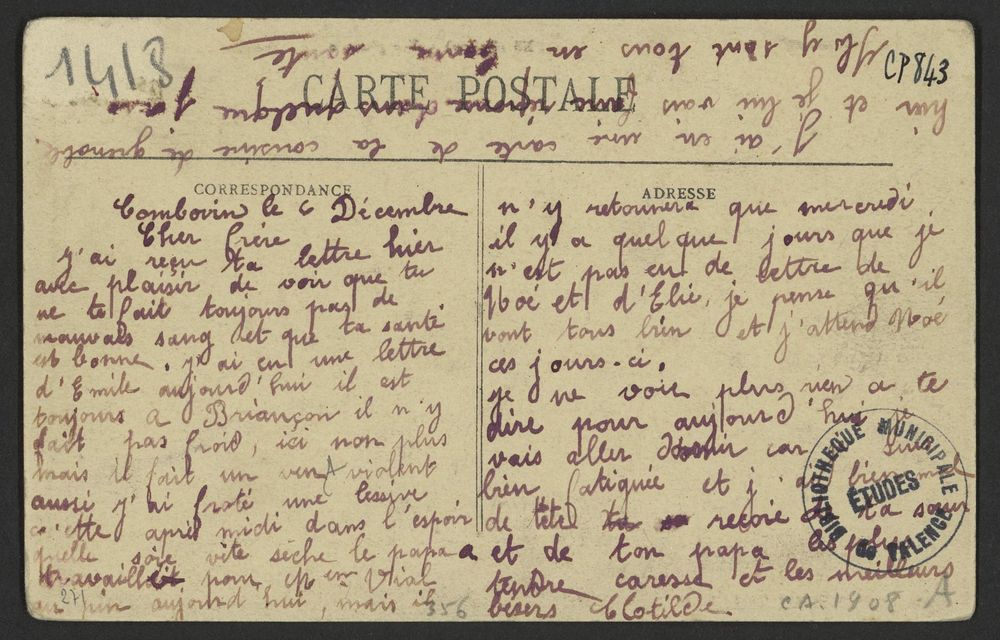 1418
CP843
CARTE POSTALE
CORRESPONDANCE
ADRESSE
Combovin le 6 Décembre
Cher frère
j'ai reçu ta lettre hier
avec plaisir de voir que tu
ne te fait toujours pas de
mauvais sang et que ta santé
est bonne, j'ai eu une lettre
d'Emile aujourd'hui il est
toujours a Briançon il n'y
fait pas froid, ici non plus
mais il fait un vent violent
aussi j'ai froté une lessive
cette après midi dans l'espoir
quelle soie vite sèche le papa a
travaillé pour Vial
aujourd hui, mais il
n'y retournera que mercredi
il y a quelque jours que je
n'est pas eu de lettre de
Noé et d'Elie, je pense qu'il
vont tous bien et j'attend Noé
ces jours-ci.
je ne voie plus rien a te
dire pour aujourd'hui je
vais aller dormir car suis
bien fatiguée et j'ai bien mal
de tête reçoie de ta sœur
et de ton papa la plus
tendre caresse et les meilleurs
bisers Clotilde
J'ai eu une carte de la cousine de grenoble
hier et je lui vais faire réponse dans quelque jours
Ils y sont tous en bonne santé
BIBLIOTHEQUE MUNICIPALE DE VALENCE
ÉTUDES
27)
356
CA.1908 - A